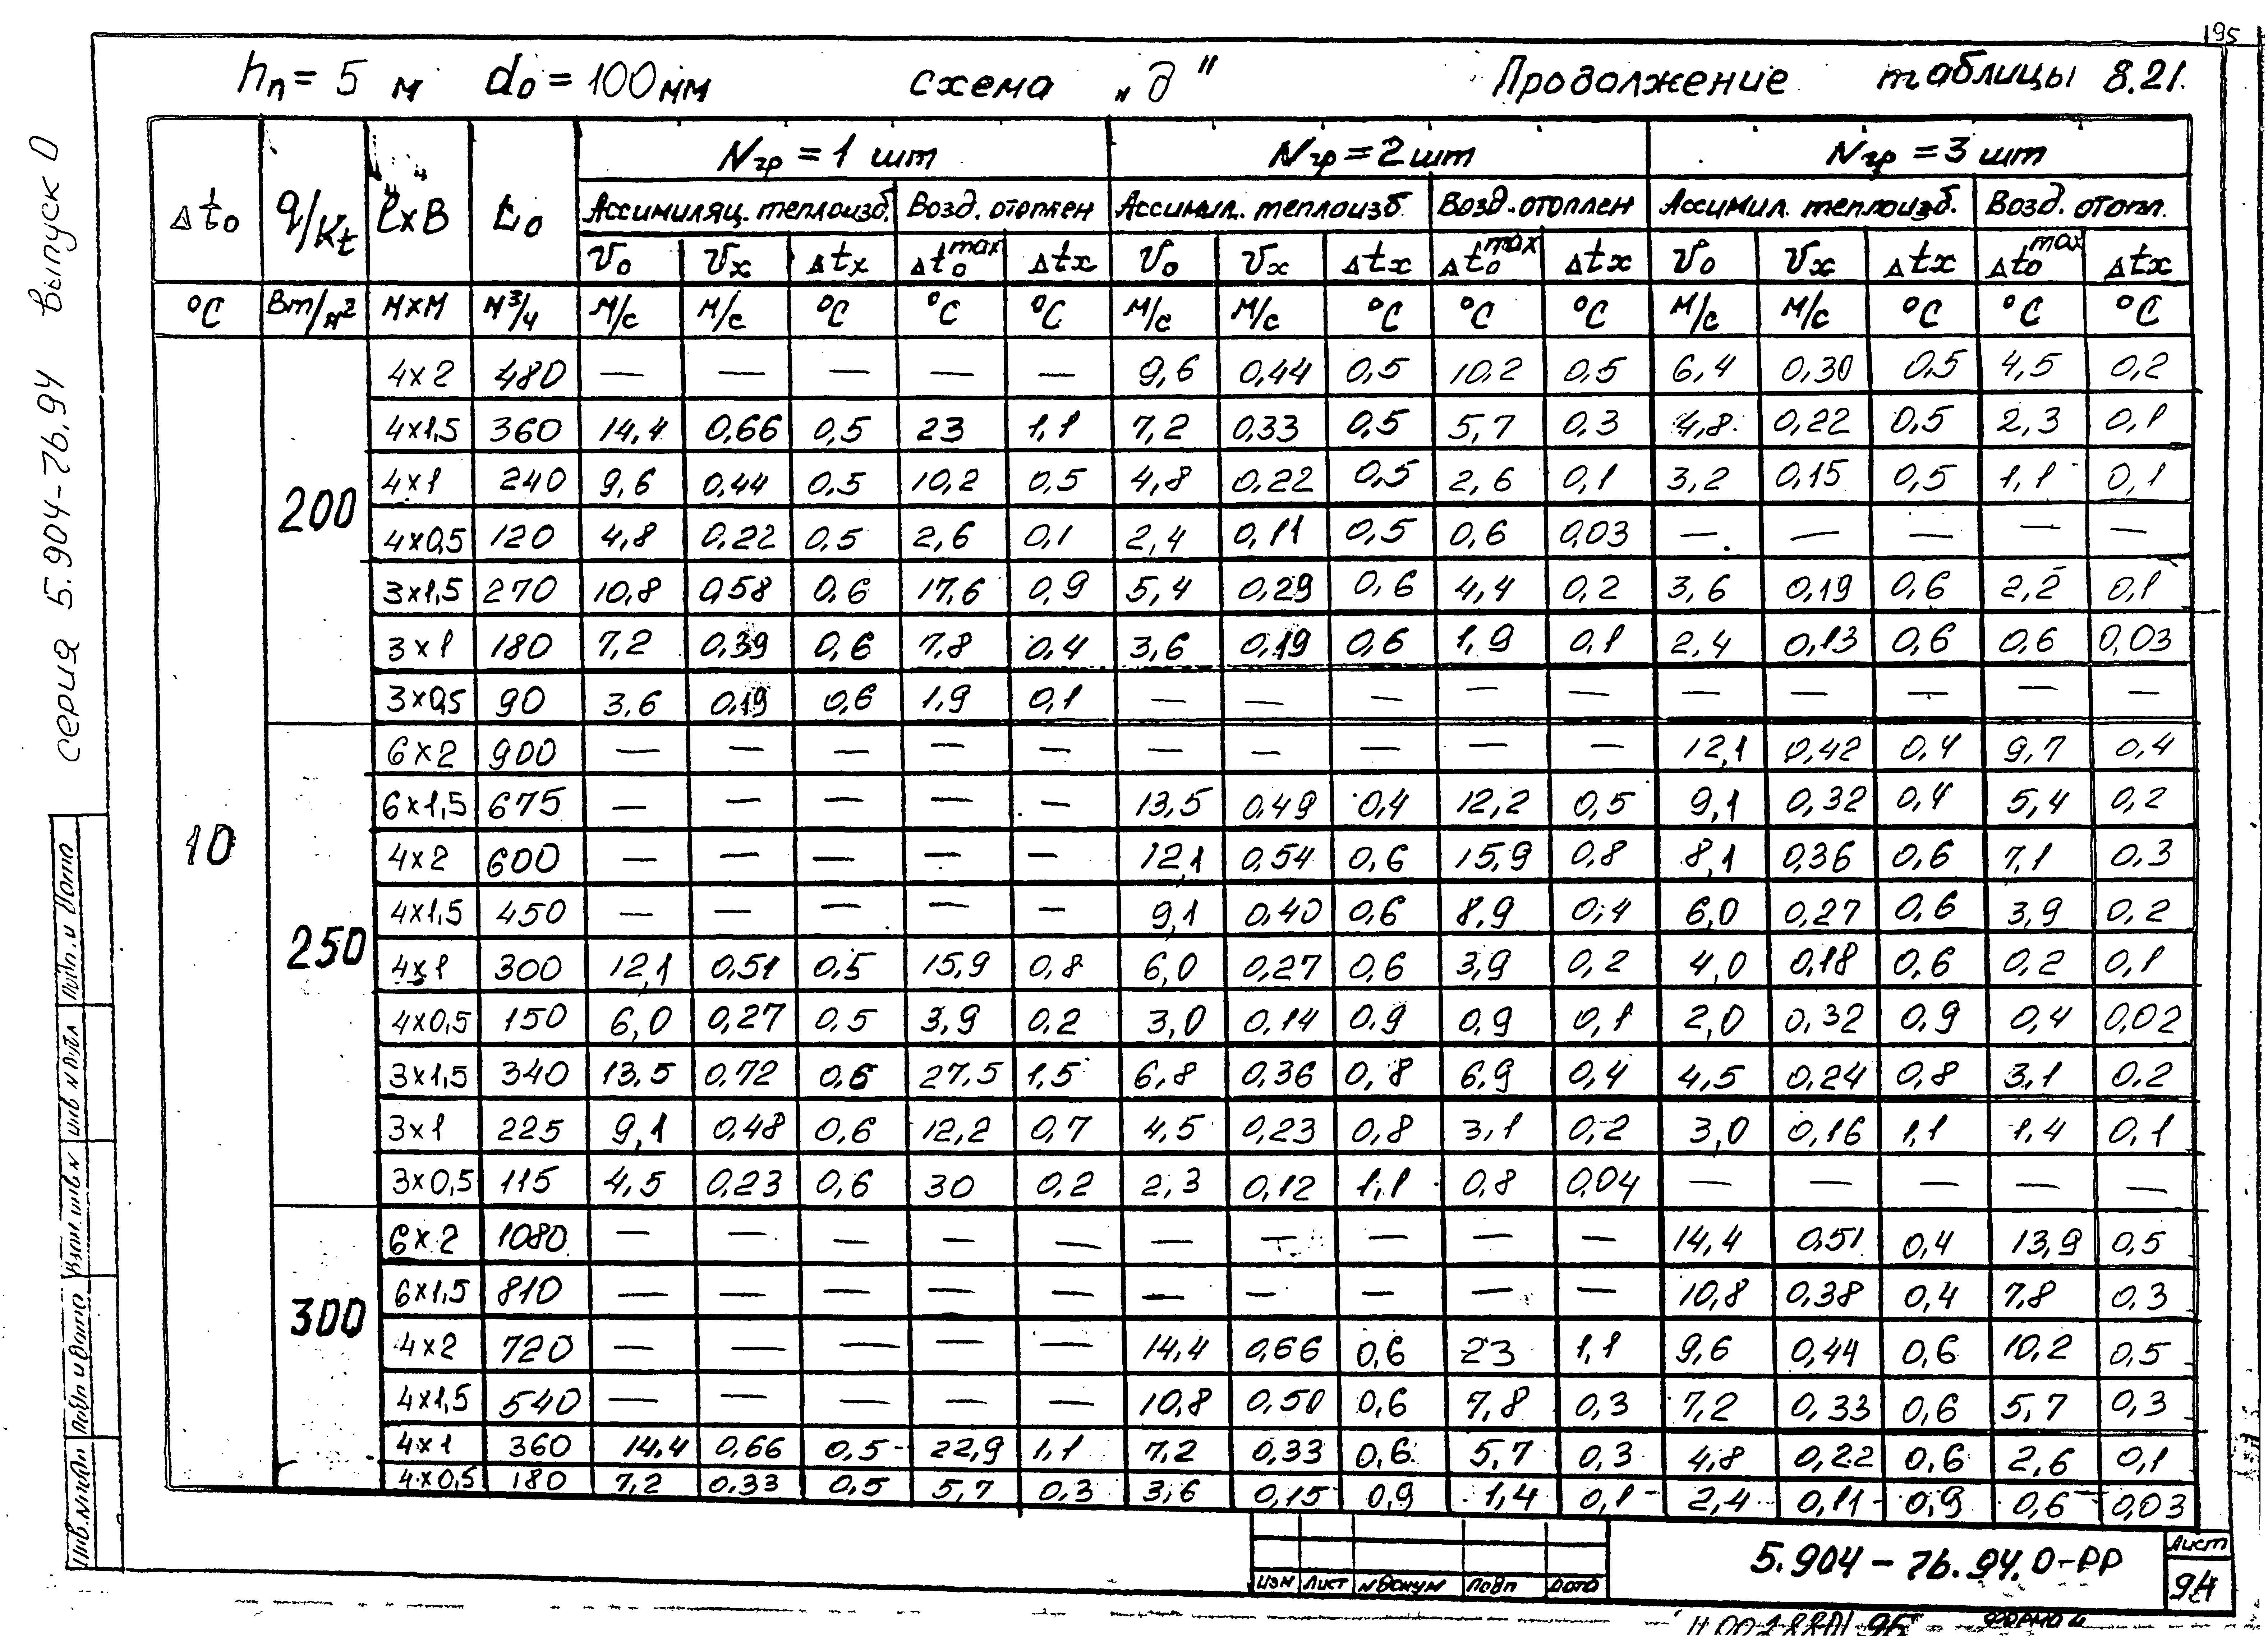 195
hп = 5 м d₀ = 100 мм схема „д" Продолжение таблицы 8.21.
серия 5.904-76.94 выпуск 0
Δt₀ q/Kt ℓхВ L₀ Nгр = 1 шт Nгр = 2 шт Nгр = 3 шт
Ассимиляц. теплоизб. Возд. отоплен Ассимил. теплоизб. Возд. отоплен Ассимил. теплоизб. Возд. отопл.
V₀ Vх Δtх Δt₀max Δtх V₀ Vх Δtх Δt₀max Δtх V₀ Vх Δtх Δt₀max Δtх
°С Вт/м² МхМ м³/ч м/с м/с °С °С °С м/с м/с °С °С °С м/с м/с °С °С °С
10
200
4х2 480 — — — — — 9,6 0,44 0,5 10,2 0,5 6,4 0,30 0,5 4,5 0,2
4х1,5 360 14,4 0,66 0,5 23 1,1 7,2 0,33 0,5 5,7 0,3 4,8 0,22 0,5 2,3 0,1
4х1 240 9,6 0,44 0,5 10,2 0,5 4,8 0,22 0,5 2,6 0,1 3,2 0,15 0,5 1,1 0,1
4х0,5 120 4,8 0,22 0,5 2,6 0,1 2,4 0,11 0,5 0,6 0,03 — — — — —
3х1,5 270 10,8 0,58 0,6 17,6 0,9 5,4 0,29 0,6 4,4 0,2 3,6 0,19 0,6 2,2 0,1
3х1 180 7,2 0,39 0,6 7,8 0,4 3,6 0,19 0,6 1,9 0,1 2,4 0,13 0,6 0,6 0,03
3х0,5 90 3,6 0,19 0,6 1,9 0,1 — — — — — — — — — —
250
6х2 900 — — — — — — — — — — 12,1 0,42 0,4 9,7 0,4
6х1,5 675 — — — — — 13,5 0,49 0,4 12,2 0,5 9,1 0,32 0,4 5,4 0,2
4х2 600 — — — — — 12,1 0,54 0,6 15,9 0,8 8,1 0,36 0,6 7,1 0,3
4х1,5 450 — — — — — 9,1 0,40 0,6 8,9 0,4 6,0 0,27 0,6 3,9 0,2
4х1 300 12,1 0,51 0,5 15,9 0,8 6,0 0,27 0,6 3,9 0,2 4,0 0,18 0,6 0,2 0,1
4х0,5 150 6,0 0,27 0,5 3,9 0,2 3,0 0,14 0,9 0,9 0,1 2,0 0,32 0,9 0,4 0,02
3х1,5 340 13,5 0,72 0,6 27,5 1,5 6,8 0,36 0,8 6,9 0,4 4,5 0,24 0,8 3,1 0,2
3х1 225 9,1 0,48 0,6 12,2 0,7 4,5 0,23 0,8 3,1 0,2 3,0 0,16 1,1 1,4 0,1
3х0,5 115 4,5 0,23 0,6 30 0,2 2,3 0,12 1,1 0,8 0,04 — — — — —
300
6х2 1080 — — — — — — — — — — 14,4 0,51 0,4 13,9 0,5
6х1,5 810 — — — — — — — — — — 10,8 0,38 0,4 7,8 0,3
4х2 720 — — — — — 14,4 0,66 0,6 23 1,1 9,6 0,44 0,6 10,2 0,5
4х1,5 540 — — — — — 10,8 0,50 0,6 7,8 0,3 7,2 0,33 0,6 5,7 0,3
4х1 360 14,4 0,66 0,5 22,9 1,1 7,2 0,33 0,6 5,7 0,3 4,8 0,22 0,6 2,6 0,1
4х0,5 180 7,2 0,33 0,5 5,7 0,3 3,6 0,15 0,9 1,4 0,1 2,4 0,11 0,9 0,6 0,03
Подп. и дата
Инв N дубл
Взам. инв N
Подп и дата
Инв. N подл
Изм Лист N докум Подп Дата
5.904-76.94.0-РР
Лист
94
Формат